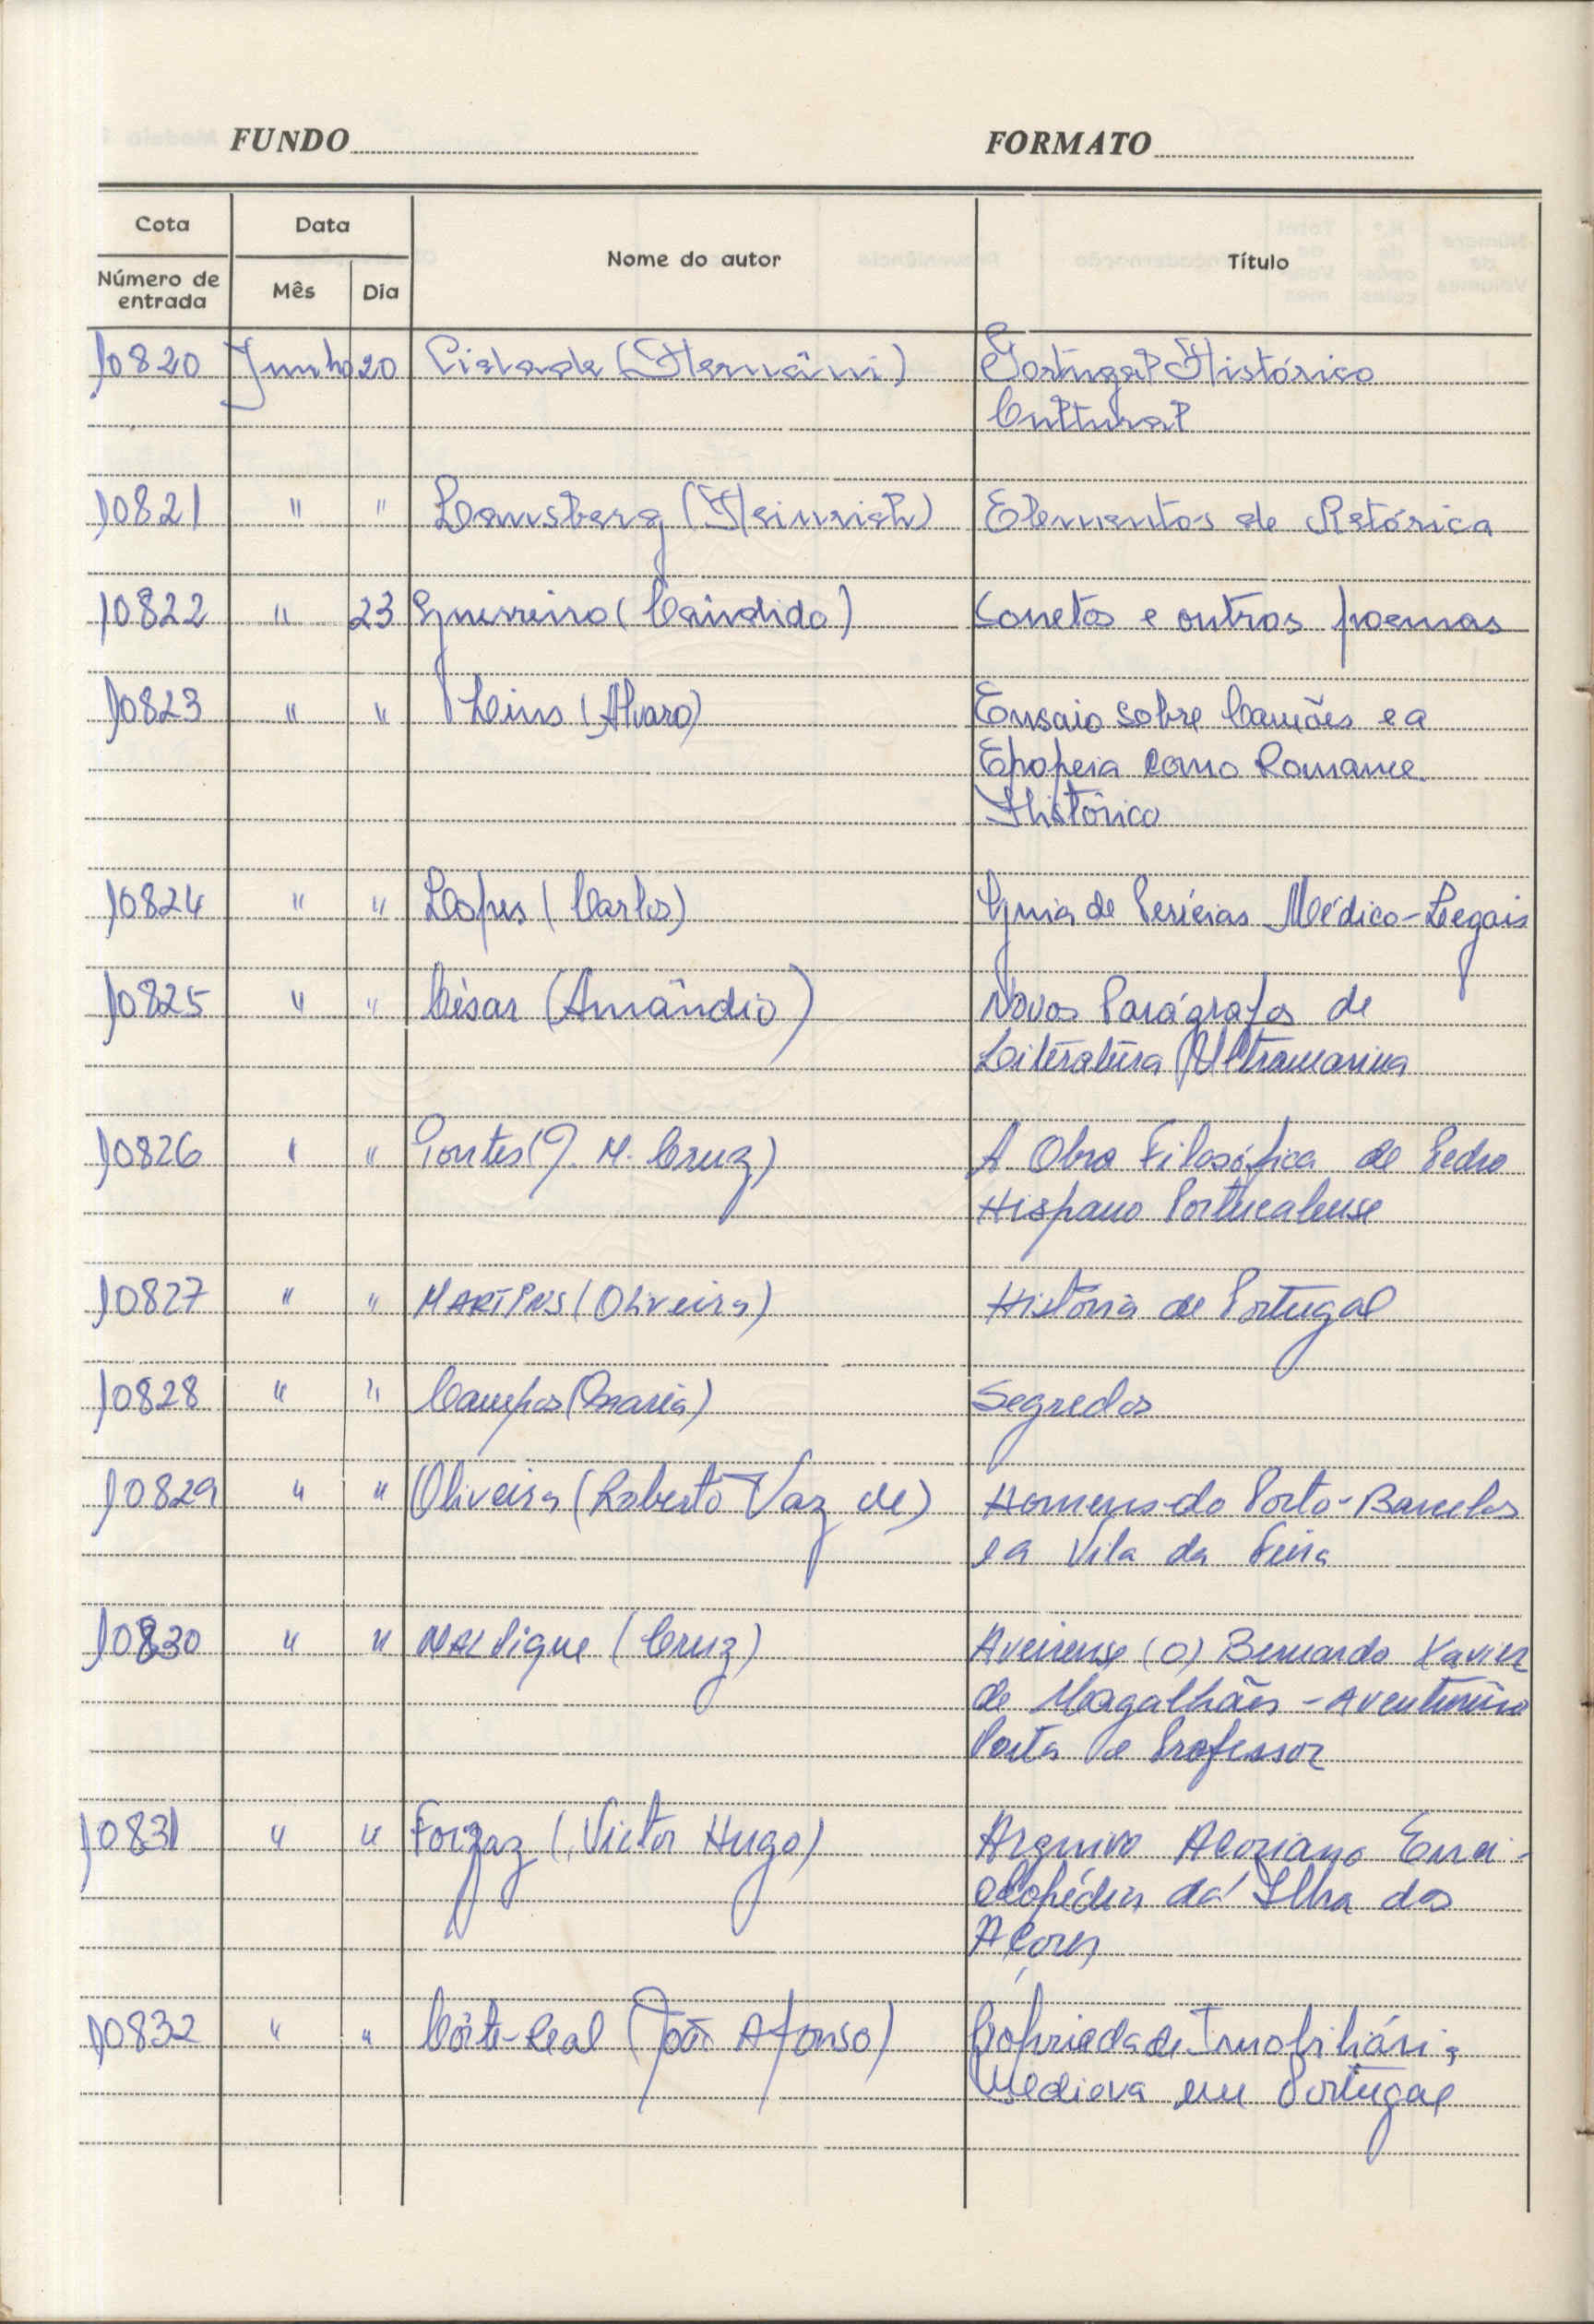 FUNDO
FORMATO
Cota Data Nome do autor Título
Número de entrada Mês Dia
10820 Junho 20 Cidade (Hernâni) Portugal Histórico
Cultural
10821 " " Lausberg (Heinrich) Elementos de Retórica
10822 " 23 Guerreiro (Cândido) Sonetos e outros poemas
10823 " " Lins (Álvaro) Ensaio sobre Camões e a
Epopeia como Romance
Histórico
10824 " " Lopes (Carlos) Guia de Perícias Médico-Legais
10825 " " César (Amândio) Novos Parágrafos de
Literatura Ultramarina
10826 " " Pontes (J. M. Cruz) A Obra Filosófica de Pedro
Hispano Portucalense
10827 " " MARTINS (Oliveira) História de Portugal
10828 " " Campos (Maria) Segredos
10829 " " Oliveira (Roberto Vaz de) Homens do Porto-Barcelos
e a Vila da Feira
10830 " " (Cruz) Aveirense (O) Bernardo Xavier
de Magalhães - Aventureiro
Poeta e Professor
10831 " " Forjaz (Victor Hugo) Arquivo Açoriano Enci-
clopédia da Ilha dos
Açores
10832 " " Côrte-Real (João Afonso) Propriedade Imobiliária
Medieva em Portugal